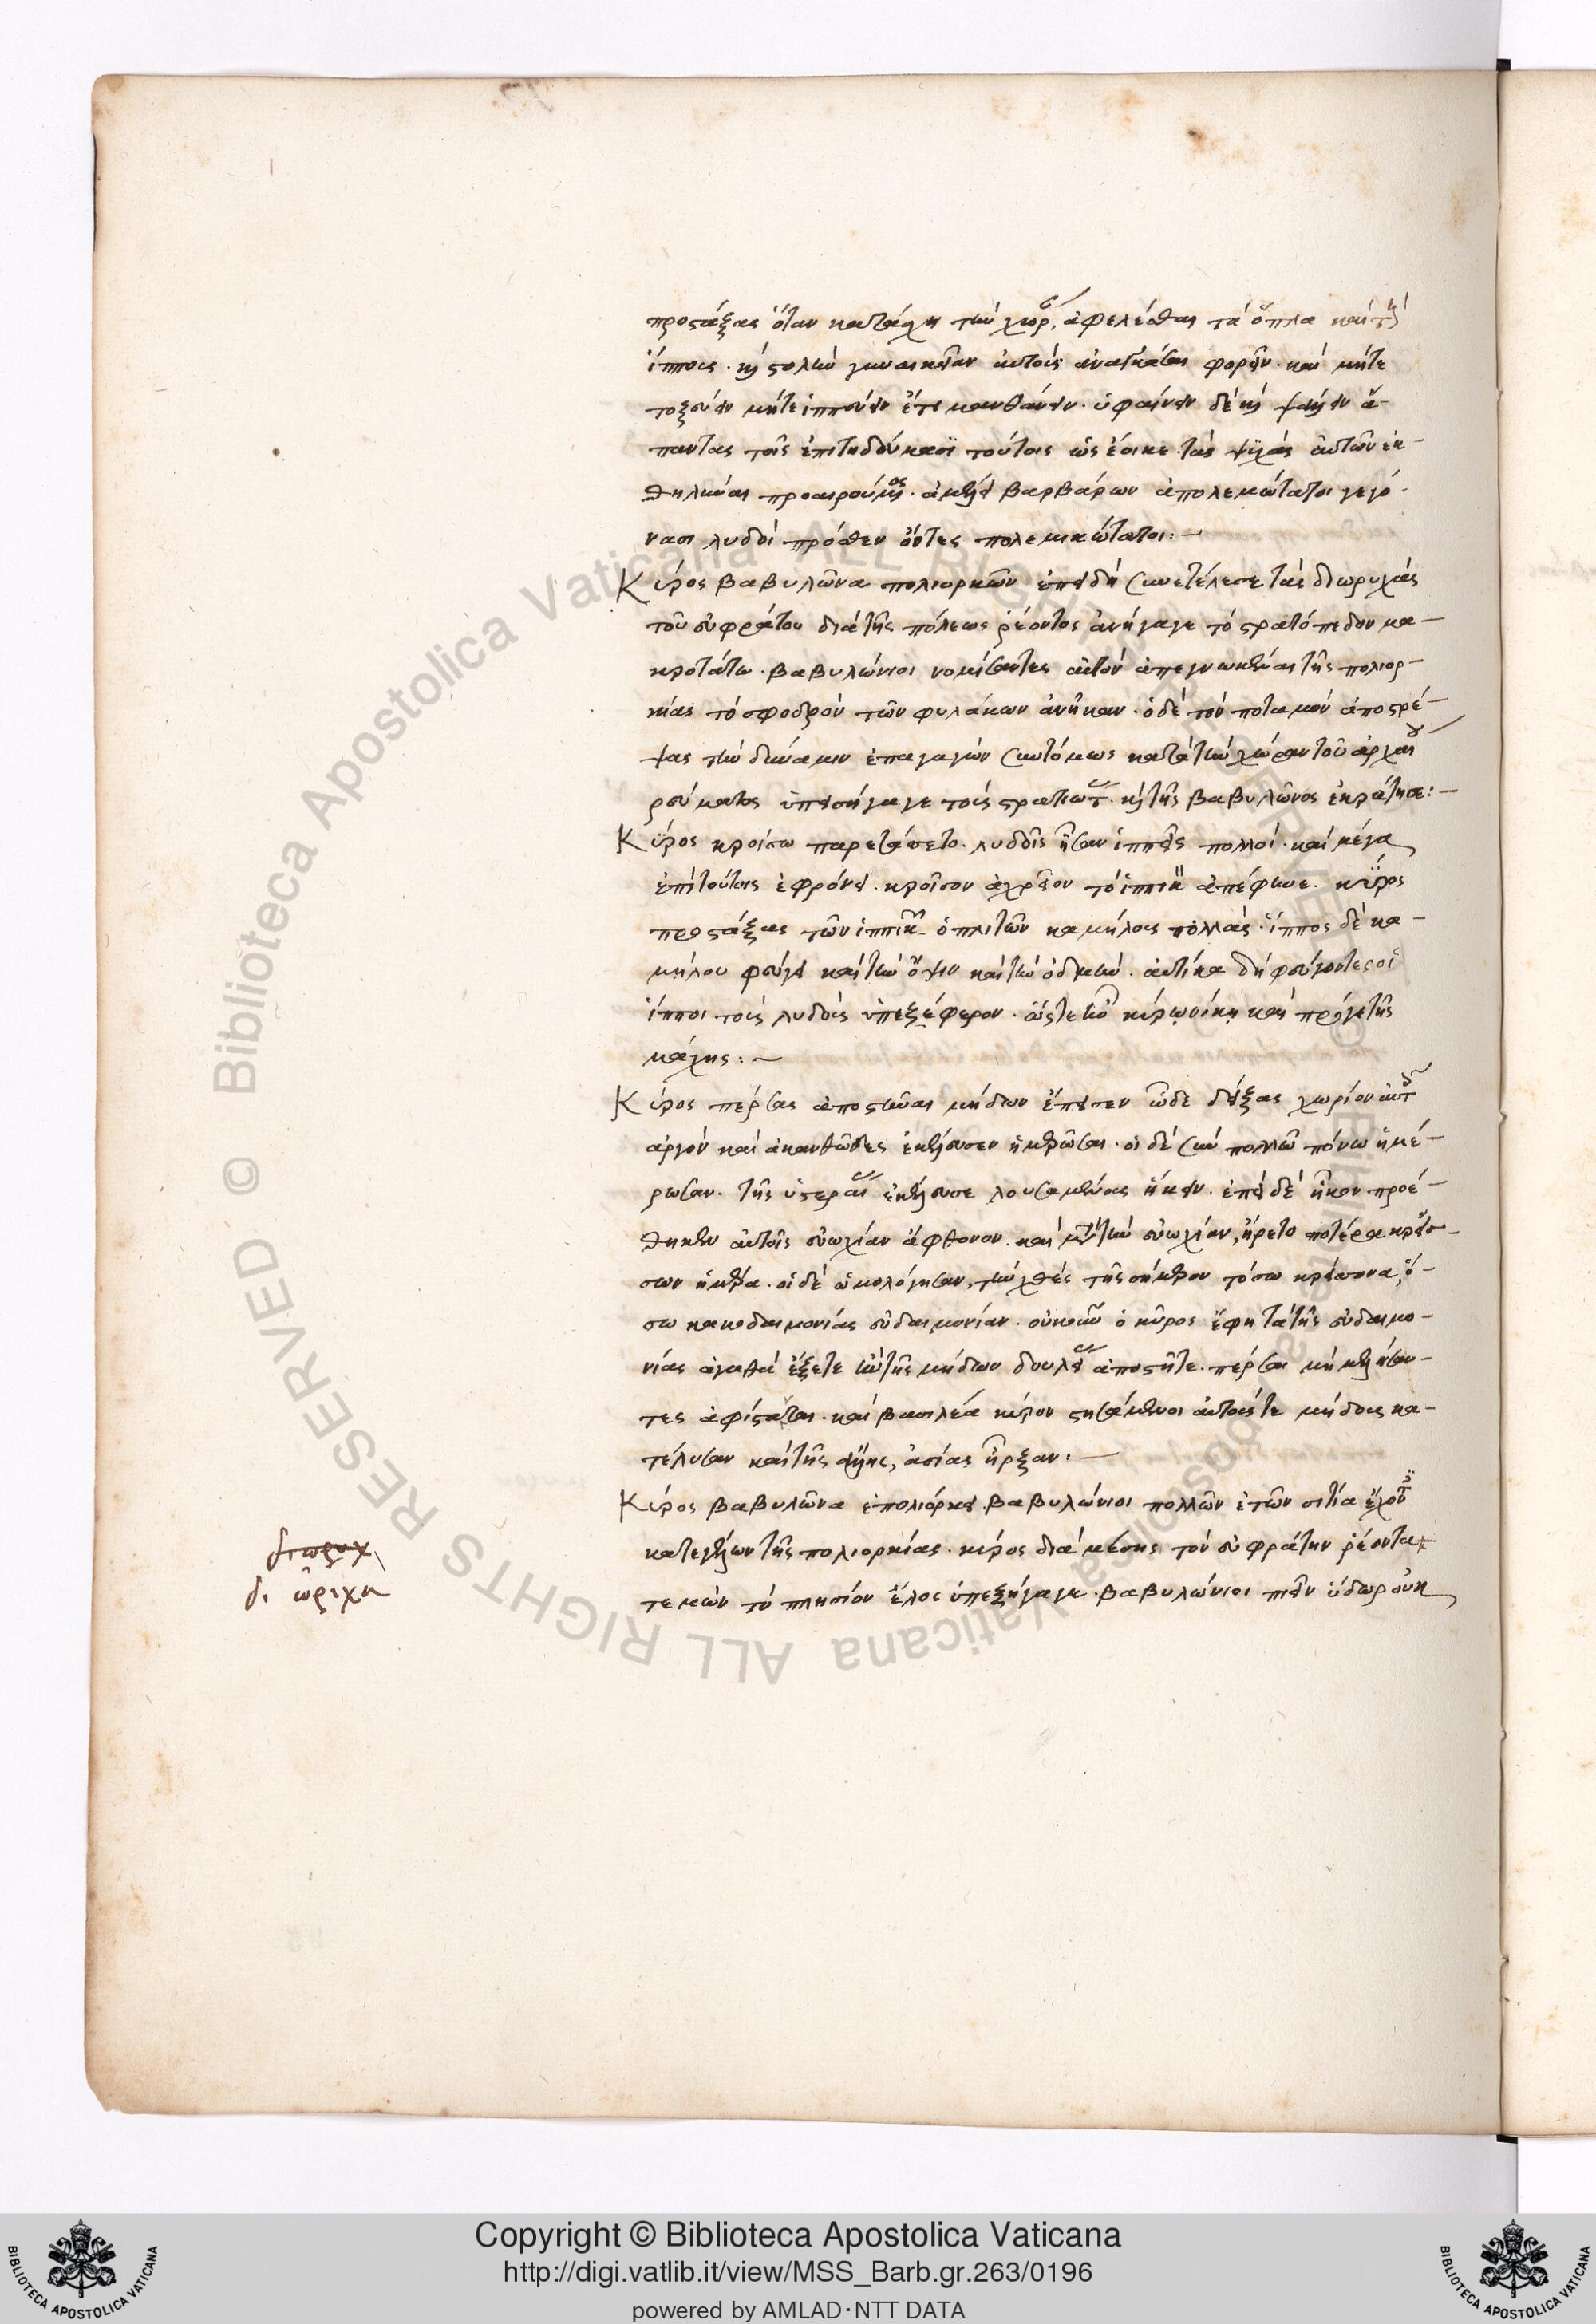 προστάξας ὅταν κατάσχη τὴν χώρ, ἀφελέσθαι τὰ ὅπλα καὶ τ
ἵππους. κỳ στολὴν γυναικείαν αὐτοὺς ἀναγκάσαι φορεῖν. καὶ μήτε
τοξεύειν μήτε ἱππεύειν ἔτι μανθάνειν. ὑφαίνειν δὲ κỳ ψάλλειν ἅ-
παντας τοῖς ἐπιτηδεύμασι τούτοις ὡς ἔοικε τὰς ψυχὰς αὐτῶν ἐκ-
θηλῦναι προαιρούμος. ἀμέλει βαρβάρων ἀπολεμώτατοι γεγό-
νασι λυδοὶ πρόσθεν ὄντες πολεμικώτατοι:—
Κύρος βαβυλῶνα πολιορκῶν ἐπειδὴ συνετέλεσε τὰς διωρυχὰς
τοῦ εὐφράτου διὰ τῆς πόλεως ῥέοντος ἀνήγαγε τὸ στρατόπεδον μα-
κροτάτω. βαβυλώνιοι νομίσαντες αὐτὸν ἀπεγνωκέναι τῆς πολιορ-
κίας τὸ σφοδρὸν τῶν φυλάκων ἀνῆκαν. ὁ δὲ τὸν ποταμὸν ἀποστρέ-
ψας τὴν δύναμιν ἐπαγαγὼν συντόμως κατὰ τὴν χώραν τοῦ ἀρχαί
ρεύματος ὑπεισήγαγε τοὺς στρατιώτ. κỳ τῆς βαβυλῶνος ἐκράτησε:—
Κῦρος κροίσω παρετάσσετο. λυδοῖς ἦσαν ἱππεῖς πολλοί. καὶ μέγα
ἐπὶ τούτοις ἐφρόνει. κροῖσον ἀχρεῖον τὸ ἱππικ ἀπέφηνε. κῦρος
προτάξας τῶν ἱππικ ὁπλιτῶν καμήλους πολλάς. ἵππος δὲ κα-
μήλου φεύγει καὶ τὴν ὄψιν καὶ τὴν ὀδμήν. αὐτίκα δὴ φεύγοντες οἱ
ἵπποι τοὺς λυδοὺς ὑπεξέφερον. ὥστε κύρω νίκη καὶ πρὸ γε τῆς
μάχης:—
Κύρος πέρσας ἀποστῆναι μήδων ἔπεισεν ὧδε δείξας χωρίον αὐτ
ἀργὸν καὶ ἀκανθῶδες ἐκέλευσεν ἡμερῶσαι. οἱ δὲ σὺν πολλῶ πόνω ἡμέ-
ρωσαν. τῆς ὑστεραί ἐκέλευσε λουσαμένους ἥκειν. ἐπεὶ δὲ ἧκον προέ-
θηκεν αὐτοῖς εὐωχίαν ἄφθονον. καὶ μετὰ τὴν εὐωχίαν, ἤρετο ποτέρα κρείσ-
σων ἡμέρα. οἱ δὲ ὡμολόγησαν, τὴν χθὲς τῆς σήμερον τόσω κρείσσονα, ὅ-
σω κακοδαιμονίας εὐδαιμονίαν. οὐκοῦν ὁ κῦρος ἔφη τὰ τῆς εὐδαιμο-
νίας ἀγαθὰ ἕξετε ἢν τῆς μήδων δουλεί ἀποστῆτε. πέρσαι μὴ μελλήσαν-
τες ἀφίστανται. καὶ βασιλέα κύρον στησάμενοι αὐτούς τε μήδους κα-
τέλυσαν καὶ τῆς ἄλλης, ἀσίας ἦρξαν:—
Κύρος βαβυλῶνα ἐπολιόρκει. βαβυλώνιοι πολλῶν ἐτῶν σιτία ἔχοντ
κατεγέλων τῆς πολιορκίας. κύρος διὰ μέσης τὸν εὐφράτην ῥέοντα
τεμὼν τὸ πλησίον ἕλος ὑπεξήγαγε. βαβυλώνιοι πιεῖν ὕδωρ οὐκ
διωρυχ
δι ὤριχα
© Biblioteca Apostolica Vaticana ALL RIGHTS RESERVED
Copyright © Biblioteca Apostolica Vaticana
http://digi.vatlib.it/view/MSS_Barb.gr.263/0196
powered by AMLAD·NTT DATA
BIBLIOTECA APOSTOLICA VATICANA
BIBLIOTECA APOSTOLICA VATICANA